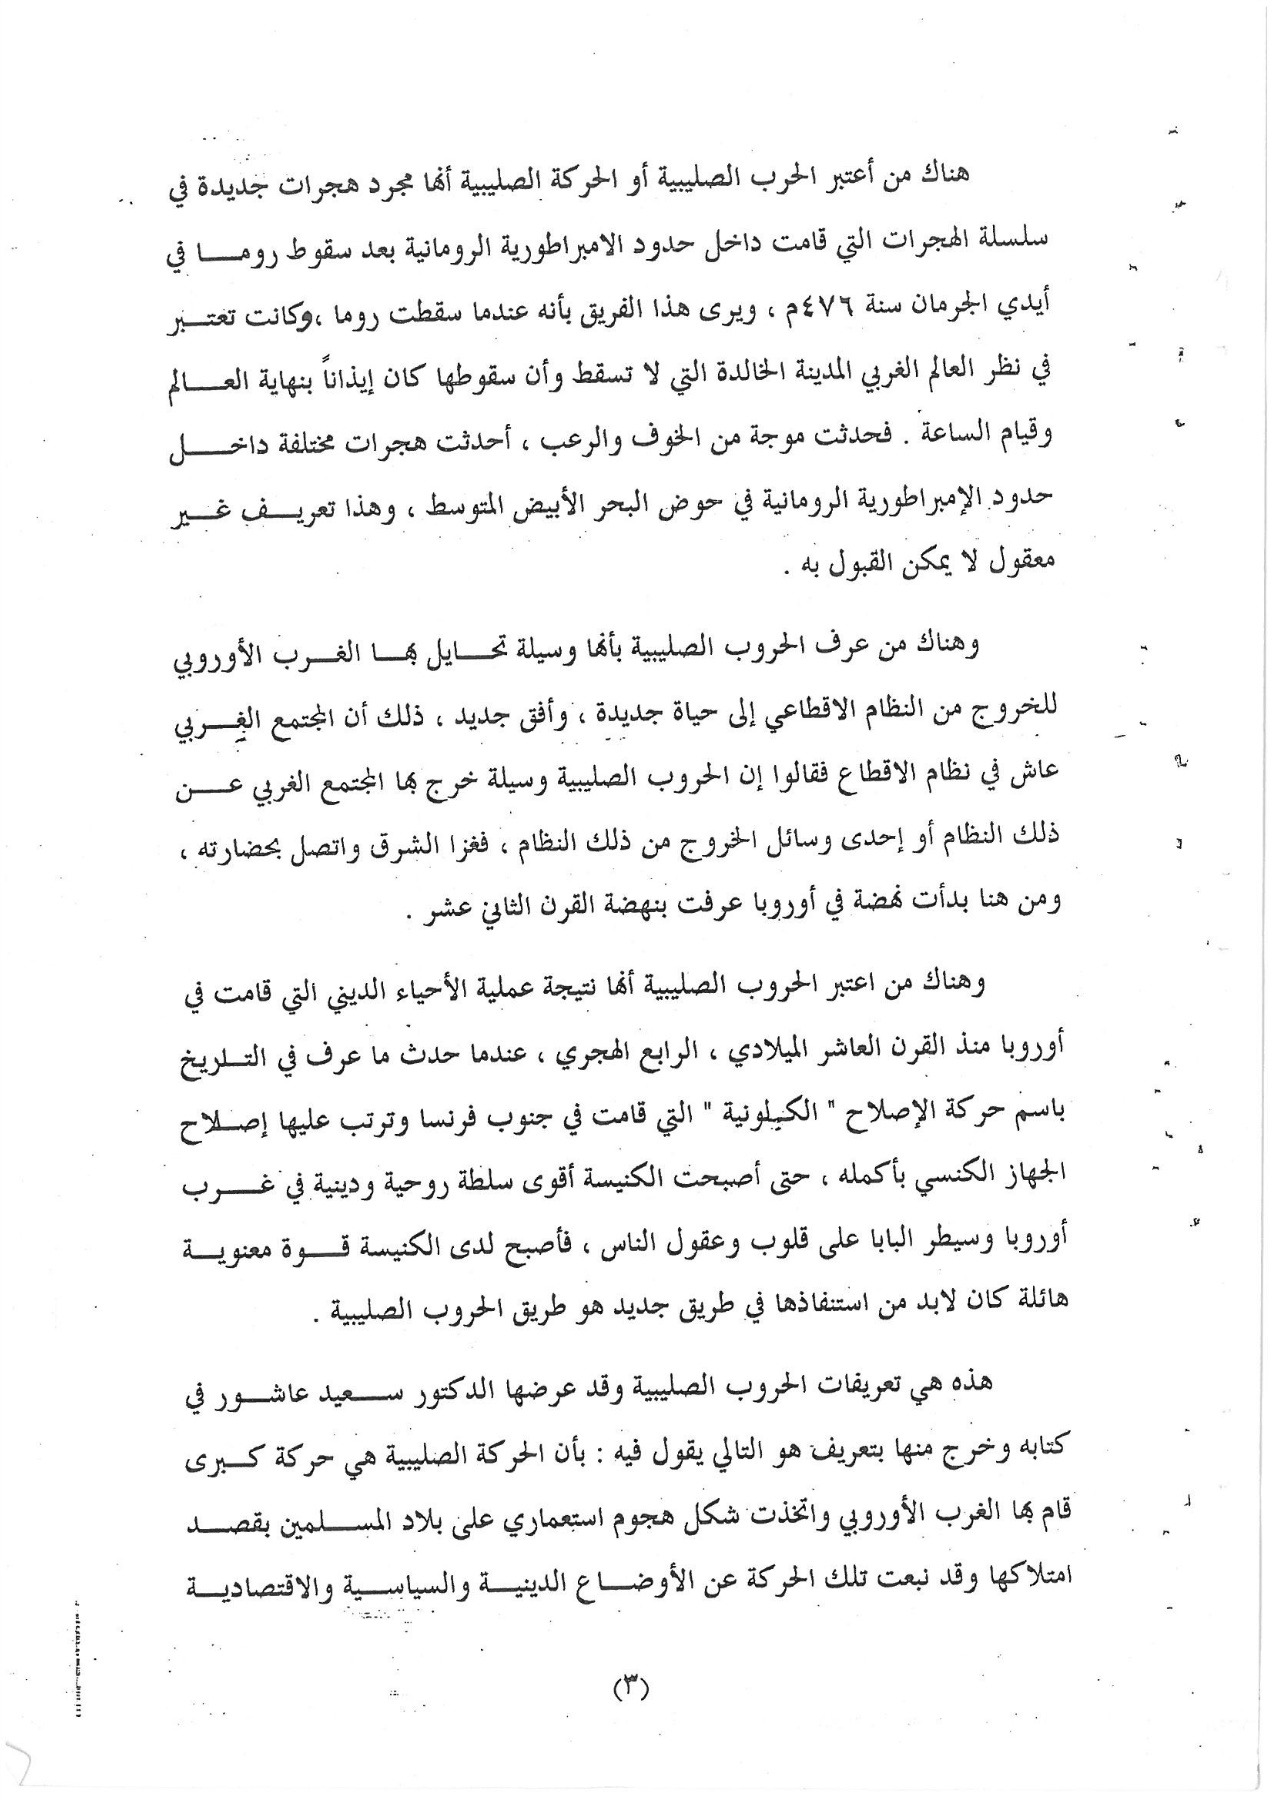 هناك من أعتبر الحرب الصليبية أو الحركة الصليبية أنها مجرد هجرات جديدة في
سلسلة الهجرات التي قامت داخل حدود الامبراطورية الرومانية بعد سقوط رومـــا في
أيدي الجرمان سنة ٤٧٦م ، ويرى هذا الفريق بأنه عندما سقطت روما ،وكانت تعتـــبر
في نظر العالم الغربي المدينة الخالدة التي لا تسقط وأن سقوطها كان إيذاناً بنهاية العـــالم
وقيام الساعة . فحدثت موجة من الخوف والرعب ، أحدثت هجرات مختلفة داخـــل
حدود الإمبراطورية الرومانية في حوض البحر الأبيض المتوسط ، وهذا تعريـــف غـــير
معقول لا يمكن القبول به .
وهناك من عرف الحروب الصليبية بأنها وسيلة تحـــايل بهـــا الغـــرب الأوروبي
للخروج من النظام الاقطاعي إلى حياة جديدة ، وأفق جديد ، ذلك أن المجتمع الغـــربي
عاش في نظام الاقطاع فقالوا إن الحروب الصليبية وسيلة خرج بها المجتمع الغربي عـــن
ذلك النظام أو إحدى وسائل الخروج من ذلك النظام ، فغزا الشرق واتصل بحضارته ،
ومن هنا بدأت نهضة في أوروبا عرفت بنهضة القرن الثاني عشر .
وهناك من اعتبر الحروب الصليبية أنها نتيجة عملية الأحياء الديني التي قامت في
أوروبا منذ القرن العاشر الميلادي ، الرابع الهجري ، عندما حدث ما عرف في التـــاريخ
باسم حركة الإصلاح " الكيلونية " التي قامت في جنوب فرنسا وترتب عليها إصـــلاح
الجهاز الكنسي بأكمله ، حتى أصبحت الكنيسة أقوى سلطة روحية ودينية في غـــرب
أوروبا وسيطر البابا على قلوب وعقول الناس ، فأصبح لدى الكنيسة قـــوة معنويـــة
هائلة كان لابد من استنفاذها في طريق جديد هو طريق الحروب الصليبية .
هذه هي تعريفات الحروب الصليبية وقد عرضها الدكتور ســـعيد عاشـــور في
كتابه وخرج منها بتعريف هو التالي يقول فيه : بأن الحركة الصليبية هي حركة كـــبرى
قام بها الغرب الأوروبي واتخذت شكل هجوم استعماري على بلاد المســـلمين بقصـــد
امتلاكها وقد نبعت تلك الحركة عن الأوضـــاع الدينيـــة والسياســـية والاقتصاديـــة
(٣)